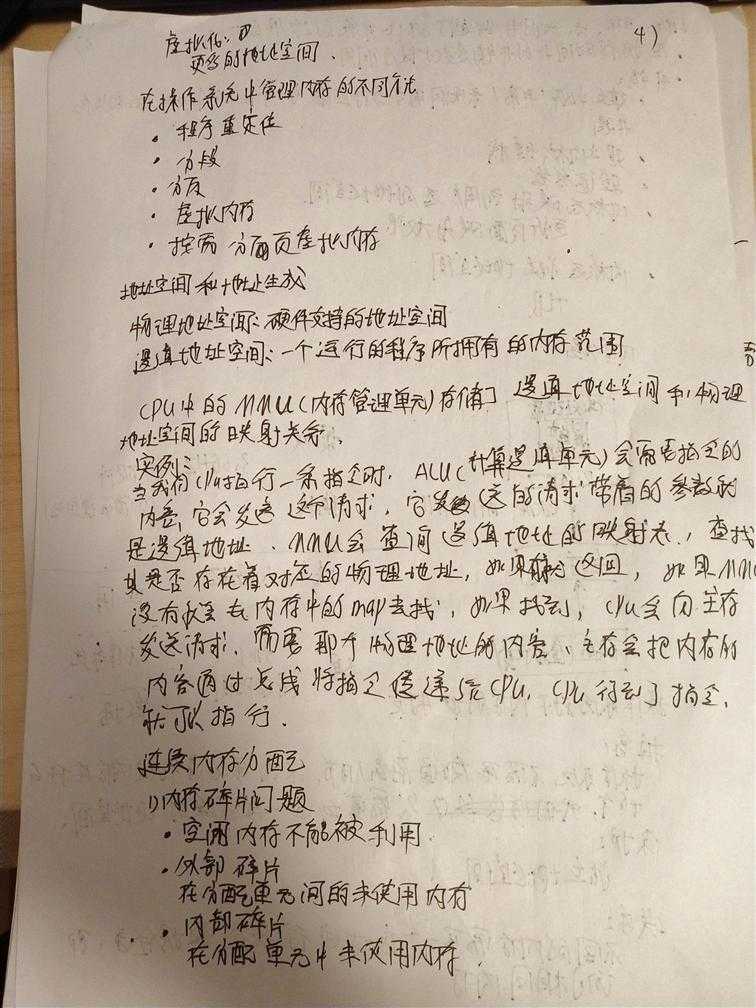 4)
虚拟化:
更多的地址空间.
在操作系统中管理内存的不同方法
• 程序重定位
• 分段
• 分页
• 虚拟内存
• 按需分页虚拟内存
地址空间和地址生成
物理地址空间: 硬件支持的地址空间
逻辑地址空间: 一个运行的程序所拥有的内存范围
CPU中的MMU(内存管理单元)存储了逻辑地址空间和物理
地址空间的映射关系.
实例:
当我们CPU执行一条指令时. ALU(计算逻辑单元)会需要指令的
内容, 它会发送这个请求. 它发出这的请求带着的参数就
是逻辑地址. MMU会查询逻辑地址的映射表, 查找
其是否存在着对应的物理地址, 如果有返回, 如果MMU
没有会去内存中的map去找, 如果找到, CPU会向主存
发送请求. 需要那个物理地址的内容、主存会把内存的
内容通过总线将指令传递给CPU, CPU得到了指令,
就可以执行.
连续内存分配
1)内存碎片问题
• 空闲内存不能被利用
• 外部碎片
在分配单元间的未使用内存
• 内部碎片
在分配单元中未使用内存